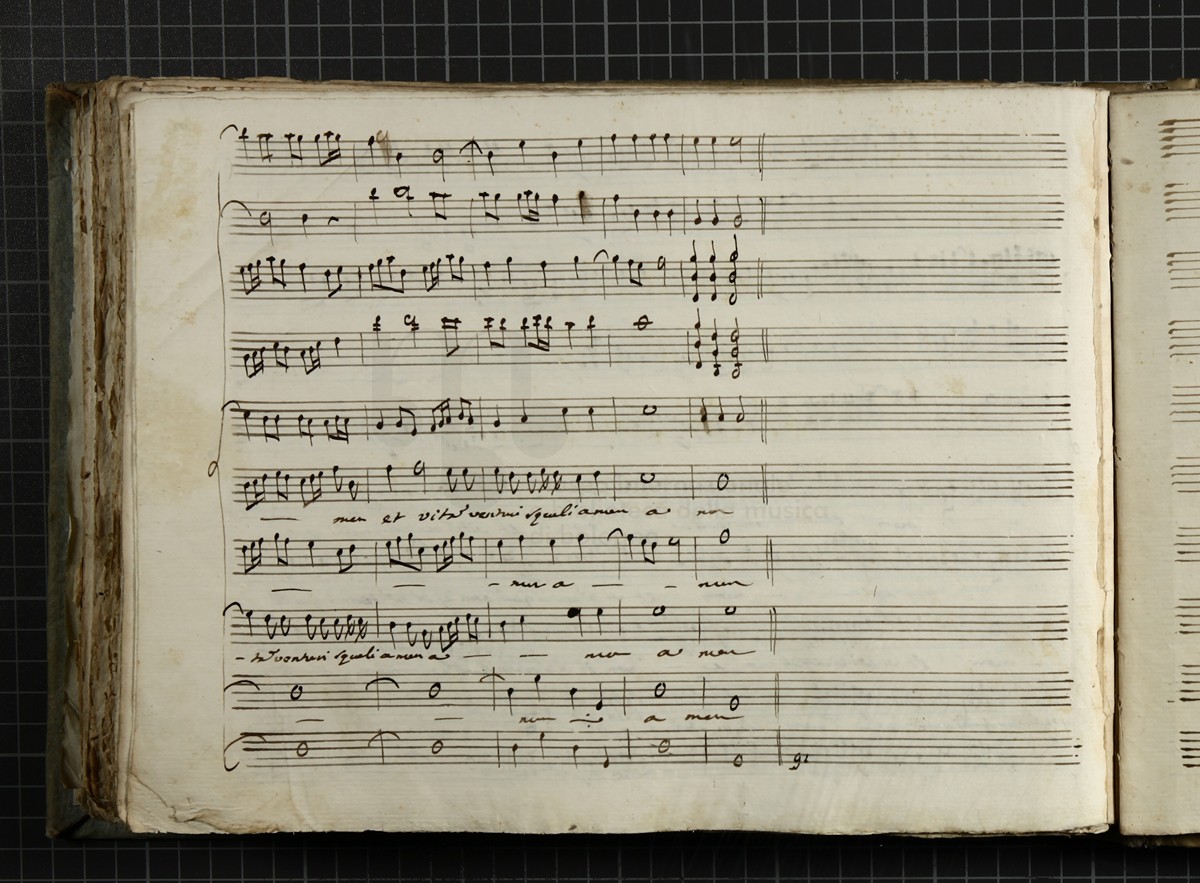 men et vitã venturi sęculi amen a men
men a men
tã venturi sęculi amen a men a men
men a men
91